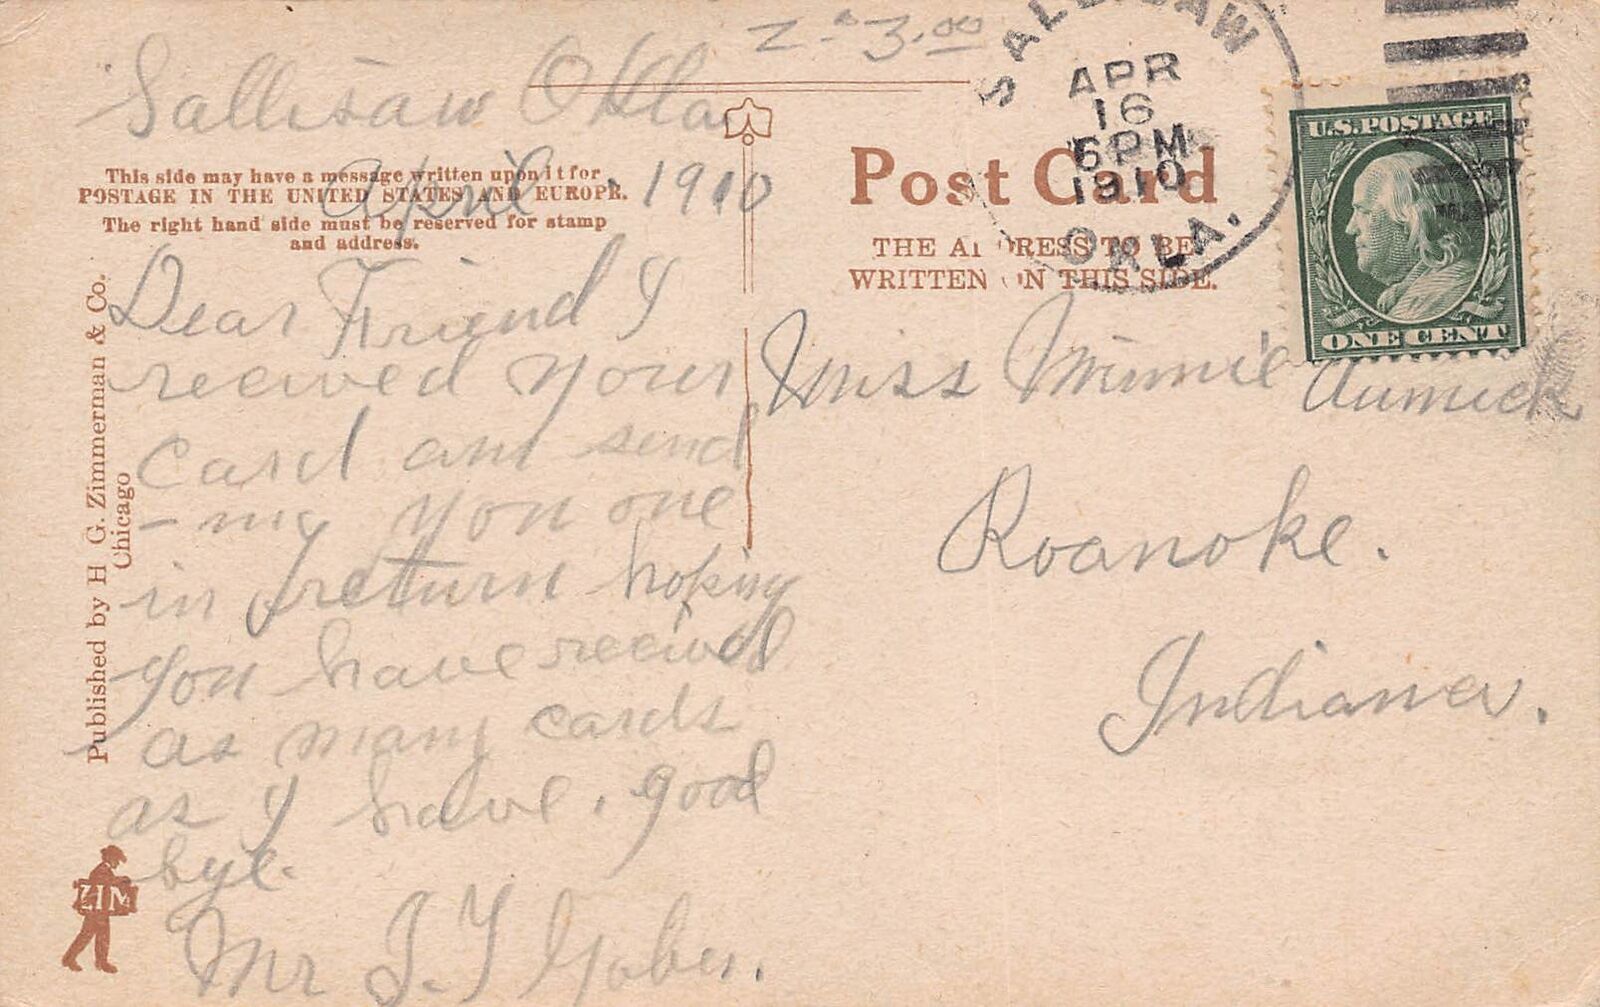 2 - 3.00
Sallisaw Okla
April, 1910
This side may have a message written upon it for
POSTAGE IN THE UNITED STATES AND EUROPE.
The right hand side must be reserved for stamp
and address.
Dear Friend I
recived your
card and send
-ing you one
in return hoping
you have recived
as many cards
as I have. good
bye.
Mr J. T Gober.
Published by H. G. Zimmerman & Co.
Chicago
ZIM
SALLISAW
APR
16
6 PM
1910
OKLA.
Post Card
THE ADDRESS TO BE
WRITTEN ON THIS SIDE.
U.S. POSTAGE
ONE CENT
Miss Minnie Aumick
Roanoke.
Indiana.